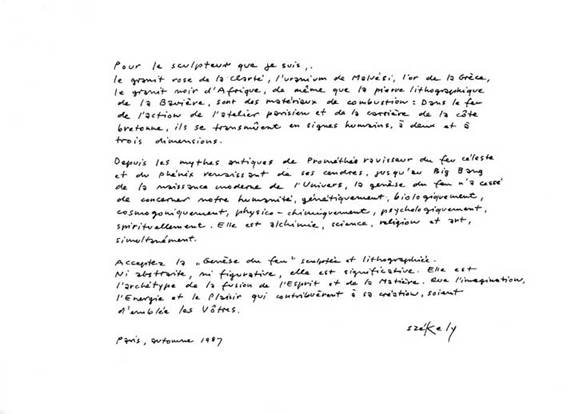 Pour le sculpteur que je suis,
le granit rose de la Clarté, l'uranium de Malvési, l'or de la Grèce,
le granit noir d'Afrique, de même que la pierre lithographique
de la Bavière, sont des matériaux de combustion : Dans le feu
de l'action de l'atelier parisien et de la carrière de la côte
bretonne, ils se transmuent en signes humains, à deux et à
trois dimensions.
Depuis les mythes antiques de Prométhée ravisseur du feu céleste
et du phénix renaissant de ses cendres, jusqu'au Big Bang
de la naissance moderne de l'Univers, la genèse du feu n'a cessé
de concerner notre humanité, génétiquement, biologiquement,
cosmogoniquement, physico-chimiquement, psychologiquement,
spirituellement. Elle est alchimie, science, religion et art,
simultanément.
Acceptez la "Genèse du feu" sculptée et lithographiée.
Ni abstraite, ni figurative, elle est significative. Elle est
l'archétype de la fusion de l'Esprit et de la Matière. Que l'imagination,
l'Energie et le Plaisir qui contribuèrent à sa création, soient
d'emblée les Vôtres.
Székely
Paris, automne 1987